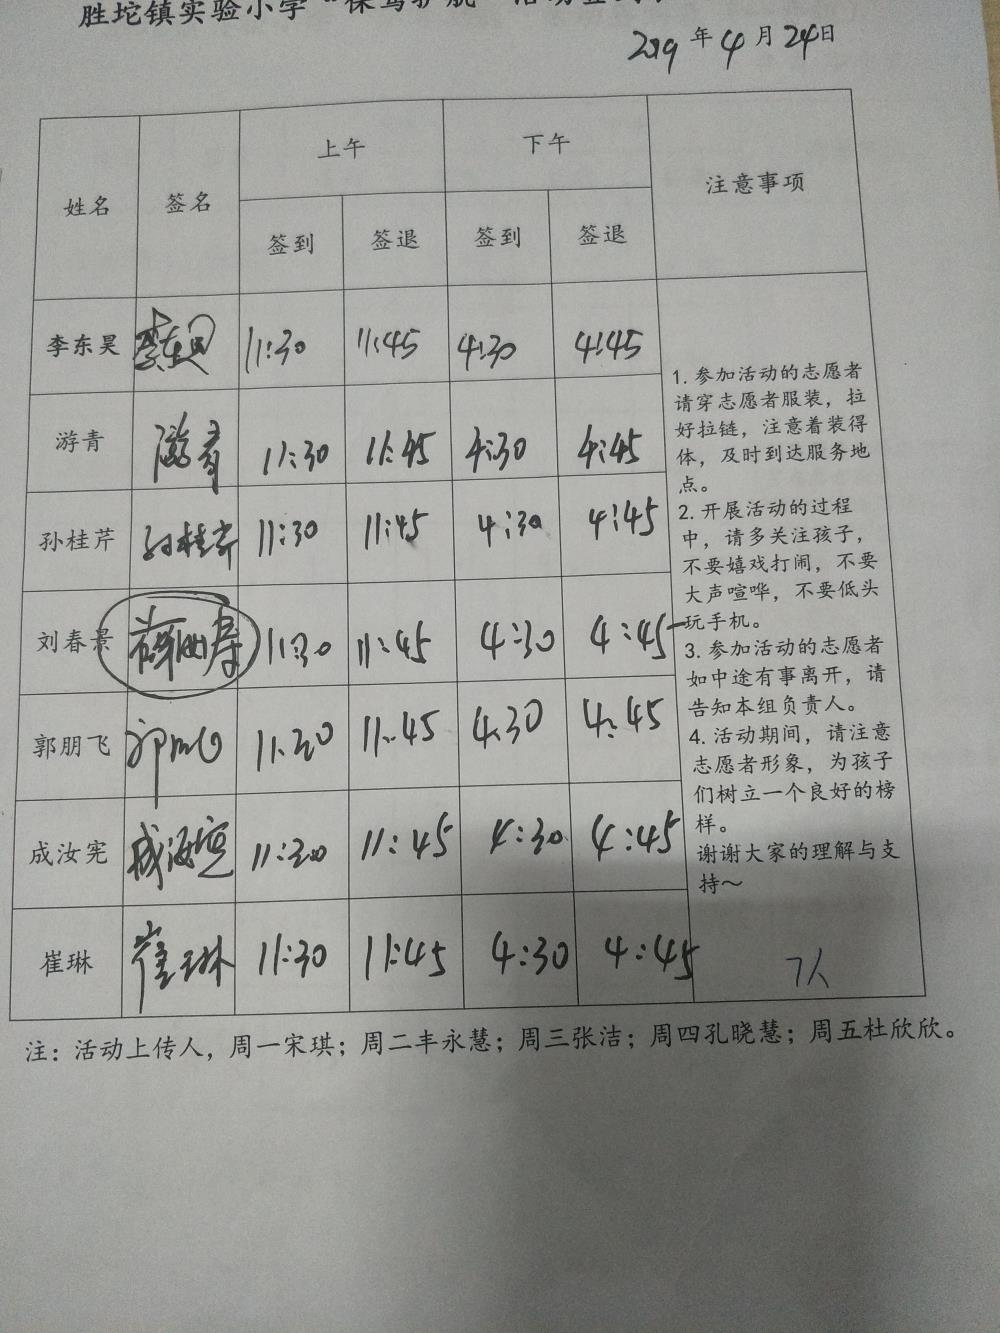 胜坨镇实验小学“保驾护航”活动签到表
2019 年 4 月 24日
姓名 签名 上午 下午 注意事项
签到 签退 签到 签退
李东昊 李东昊 11:30 11:45 4:30 4:45
游青 游青 11:30 11:45 4:30 4:45
孙桂芹 孙桂芹 11:30 11:45 4:30 4:45
刘春景 11:30 11:45 4:30 4:45
郭朋飞 11:30 11:45 4:30 4:45
成汝宪 成汝宪 11:30 11:45 4:30 4:45
崔琳 崔琳 11:30 11:45 4:30 4:45
1. 参加活动的志愿者
请穿志愿者服装，拉
好拉链，注意着装得
体，及时到达服务地
点。
2. 开展活动的过程
中，请多关注孩子，
不要嬉戏打闹，不要
大声喧哗，不要低头
玩手机。
3. 参加活动的志愿者
如中途有事离开，请
告知本组负责人。
4. 活动期间，请注意
志愿者形象，为孩子
们树立一个良好的榜
样。
谢谢大家的理解与支
持～
7人
注：活动上传人，周一宋琪；周二丰永慧；周三张洁；周四孔晓慧；周五杜欣欣。